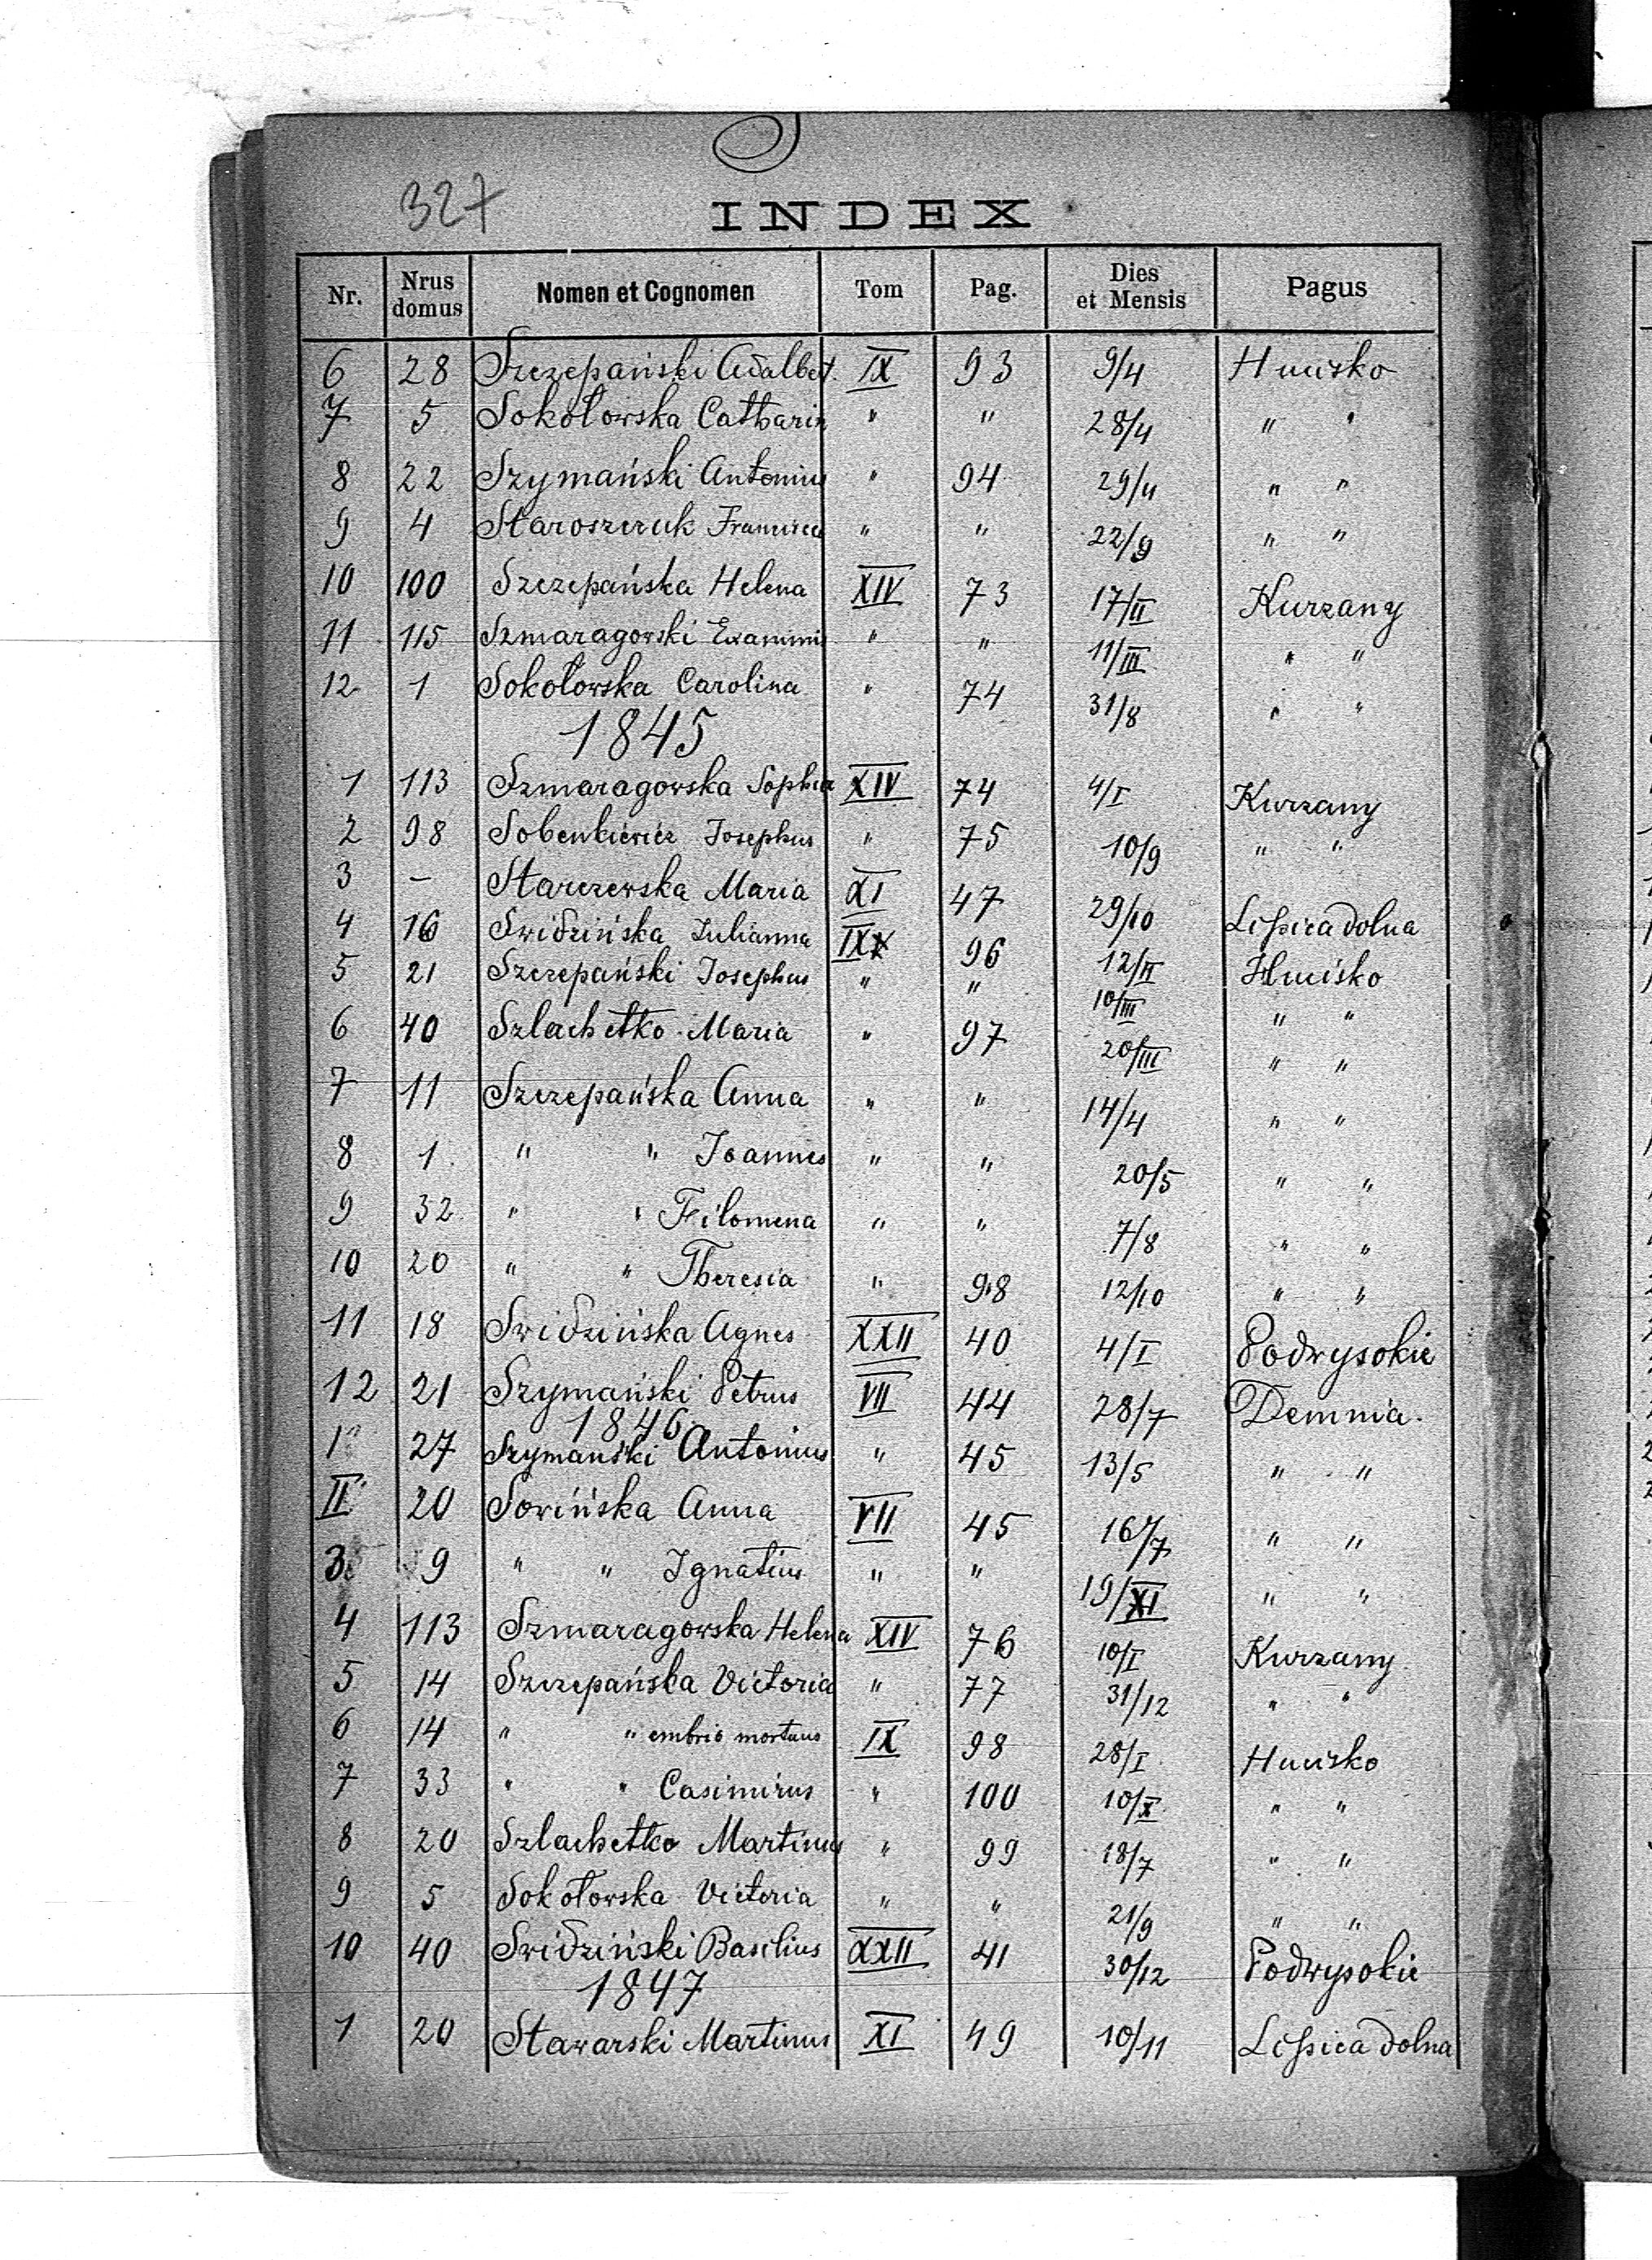 327
INDEX
Nr. Nrus domus Nomen et Cognomen Tom Pag. Dies et Mensis Pagus
6 28 Szczepański Adalbert. IX 93 9/4 Hucisko
7 5 Sokołowska Catharin " " 28/4 " "
8 22 Szymański Antonius " 94 29/4 " "
9 4 Staroszczuk Francisca " " 22/9 " "
10 100 Szczepańska Helena XIV 73 17/II Kurzany
11 115 Szmaragowski " " 11/III " "
12 1 Sokołowska Carolina " 74 31/8 " "
1845
1 113 Szmaragowska Sophia XIV 74 4/I Kurzany
2 98 Sobenkiewicz Josephus " 75 10/9 " "
3 – Starczewska Maria XI 47 29/10 Lipica dolna
4 16 Swidzińska Julianna IX 96 12/II Hucisko
5 21 Szczepański Josephus " " 10/III " "
6 40 Szlachetko Maria " 97 20/III " "
7 11 Szczepańska Anna " " 14/4 " "
8 1 " " Joannes " " 20/5 " "
9 32 " " Filomena " " 7/8 " "
10 20 " " Theresia " 98 12/10 " "
11 18 Swidzińska Agnes XXII 40 4/I Podwysokie
12 21 Szymański Petrus VII 44 28/7 Demnia.
1846
1 27 Szymański Antonius " 45 13/5 " "
II 20 Sowińska Anna VII 45 16/7 " "
3 9 " " Ignatius " " 19/XI " "
4 113 Szmaragowska Helena XIV 76 10/I Kurzany
5 14 Szczepańska Victoria " 77 31/12 " "
6 14 " " embrio mortuus IX 98 28/I Hucisko
7 33 " " Casimirus " 100 10/X " "
8 20 Szlachetko Martinus " 99 18/7 " "
9 5 Sokołowska Victoria " " 21/9 " "
10 40 Swidziński Basilius XXII 41 30/12 Podwysokie
1847
1 20 Stawarski Martinus XI 49 10/11 Lipica dolna